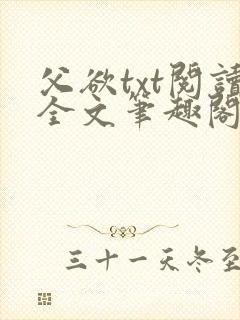 父欲txt閱讀
全文筆趣閣
三十一天冬至